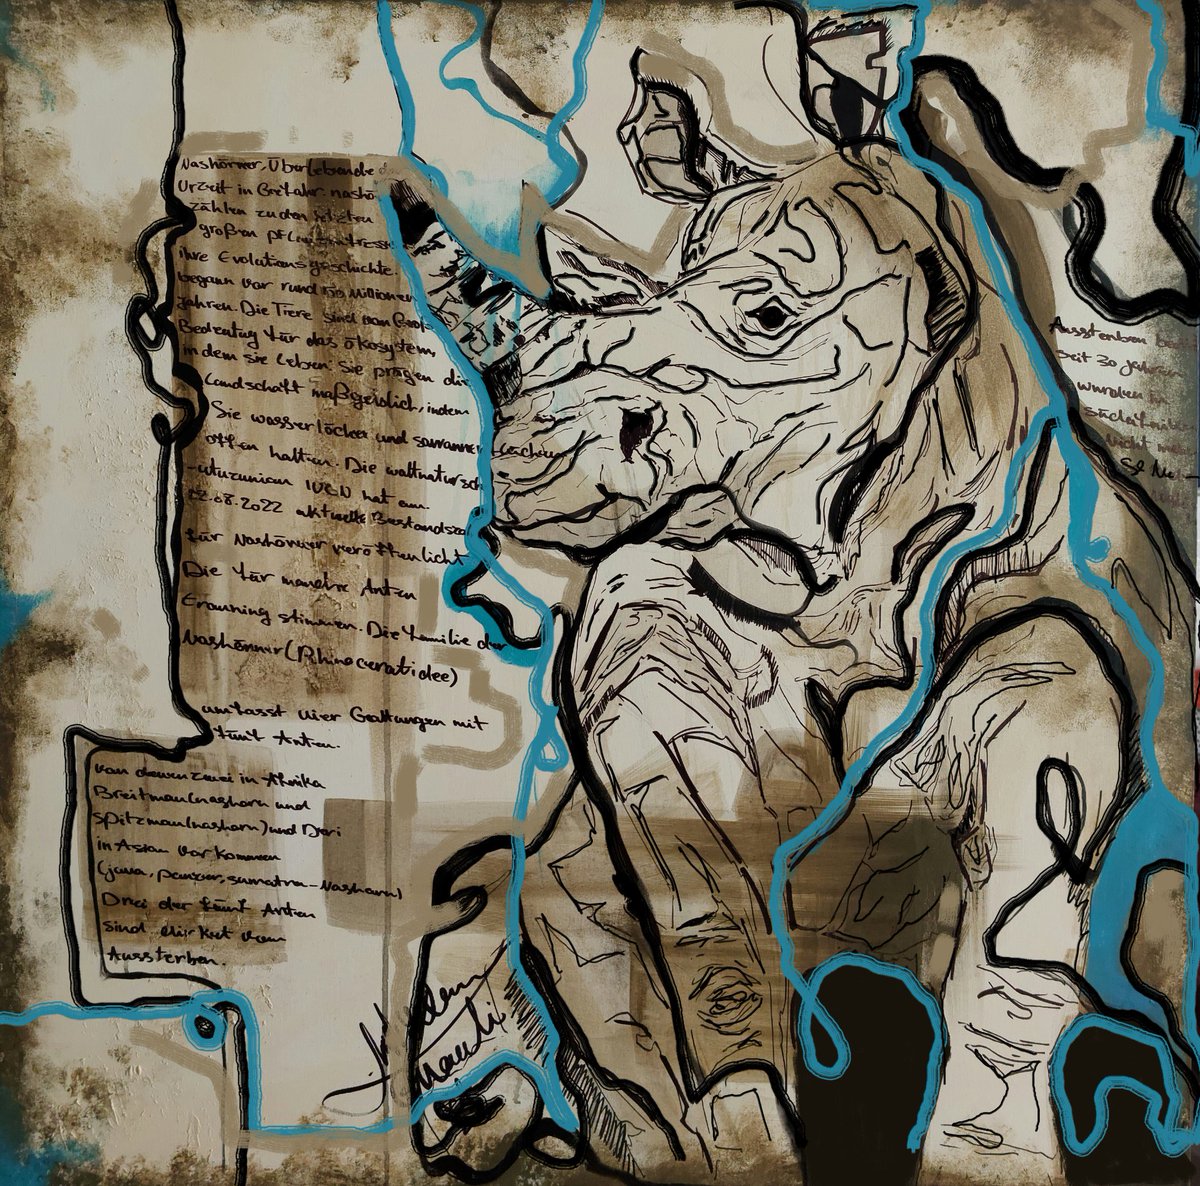 Nashörner, Überlebende d
Urzeit in Gefahr. nashö
zählen zu den letzten
großen pflanzenfresse
ihre Evolutionsgeschichte
begann vor rund 50 Millionen
Jahren. Die Tiere sind von Groß
Bedeutung für das ökosystem,
in dem sie leben. Sie prägen die
Landschaft maßgeblich, indem
Sie wasserlöcher und savannen
offen halten. Die weltnatursch
-utzunion IUCN hat am
22.08.2022 aktuelle Bestandsza
für Nashörner veröffentlicht
Die für manche Arten
Die Familie der
Nashörner (Rhinocerotidee)
umfasst vier Gattungen mit
fünf Arten.
von denen zwei in Afrika
Breitmaulnashorn und
spitzmaulnashorn) und Drei
in Asien vorkommen
(java, panzer, sumatra-Nashorn)
Drei der fünf Arten
sind direkt vom
Aussterben.
Aussterben
seit 30 Jahren
wurden in
nicht